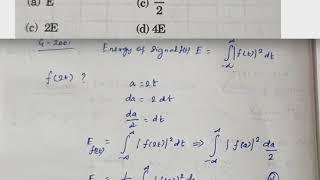 (a) E (c) E/2
(c) 2E (d) 4E
G-2001 Energy of signal f(t) E = ∫_{-∞}^{∞} |f(t)|² dt
f(2t) ?
a = 2t
da = 2 dt
da/2 = dt
E_{f(2t)} = ∫_{-∞}^{∞} |f(2t)|² dt ⇒ ∫_{-∞}^{∞} |f(a)|² da/2
E = 1/2 ∫ |f(a)|² da